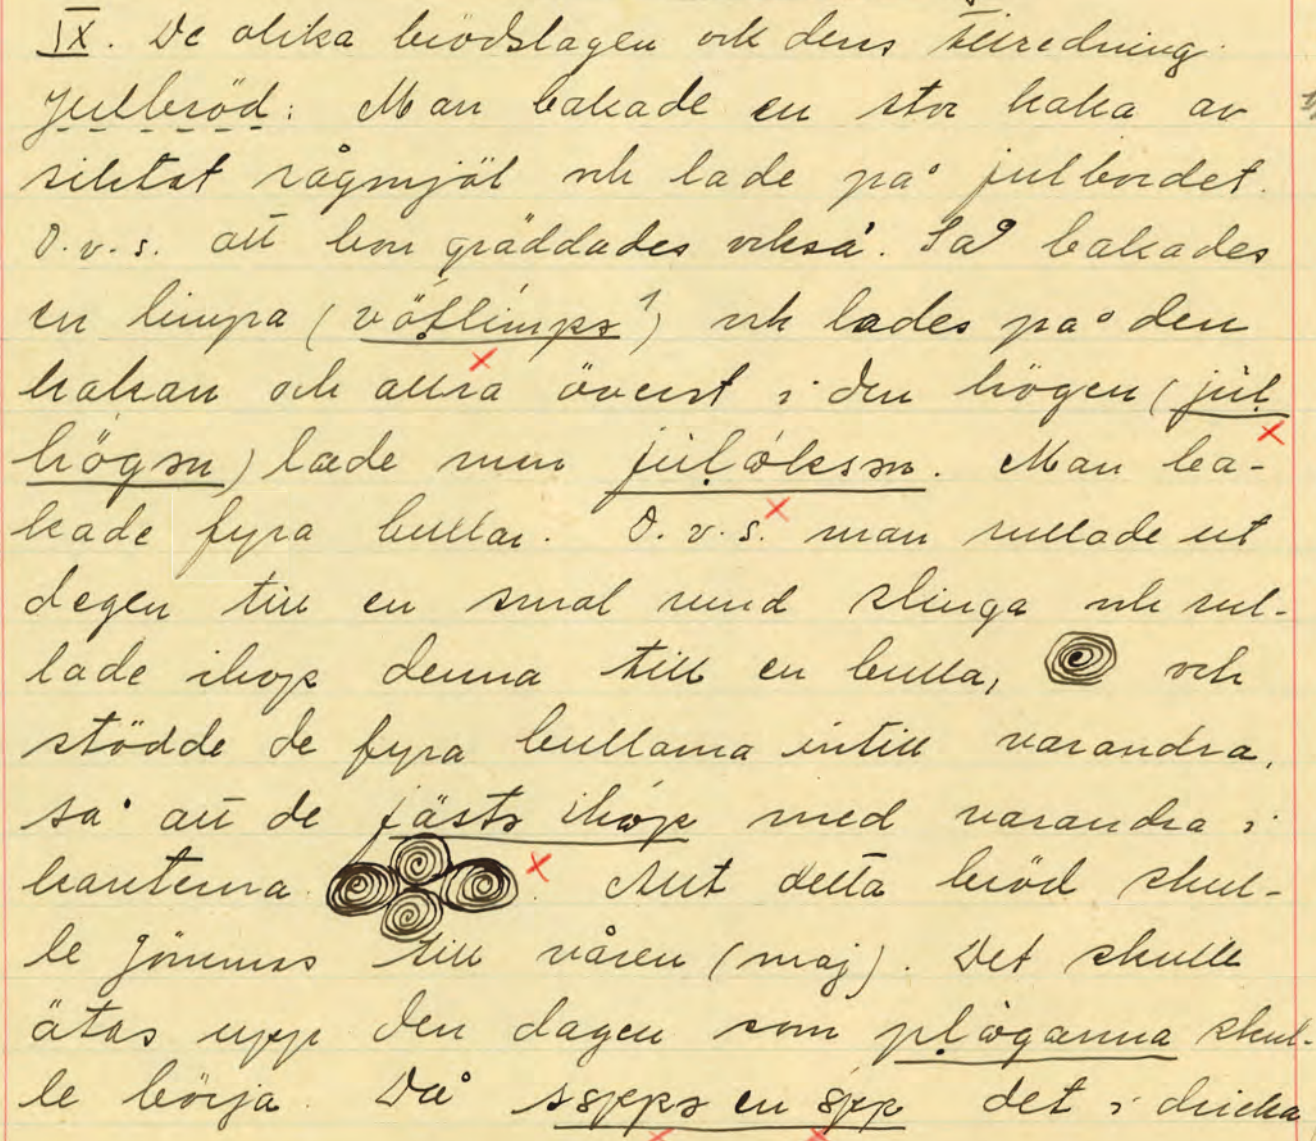 IX. De olika brödslagen och dess tillredning.
Julbröd: Man bakade en stor kaka av
siktat rågmjöl och lade på julbordet.
D.v.s. att hon gräddades också. Så bakades
en limpa (vöťlimpa) och lades på den
kakan och allra överst i den högen (jul
högen) lade man julóksen. Man ba-
kade fyra bullar. D.v.s. man rullade ut
degen till en smal rund slinga och rul-
lade ihop denna till en bulla, och
stödde de fyra bullarna intill varandra,
så att de jästə ihop med varandra i
kanterna. Allt detta bröd skul-
le gömmas till våren (maj). Det skulle
ätas upp den dagen som plöganna skul-
le börja. Då en det i dricka